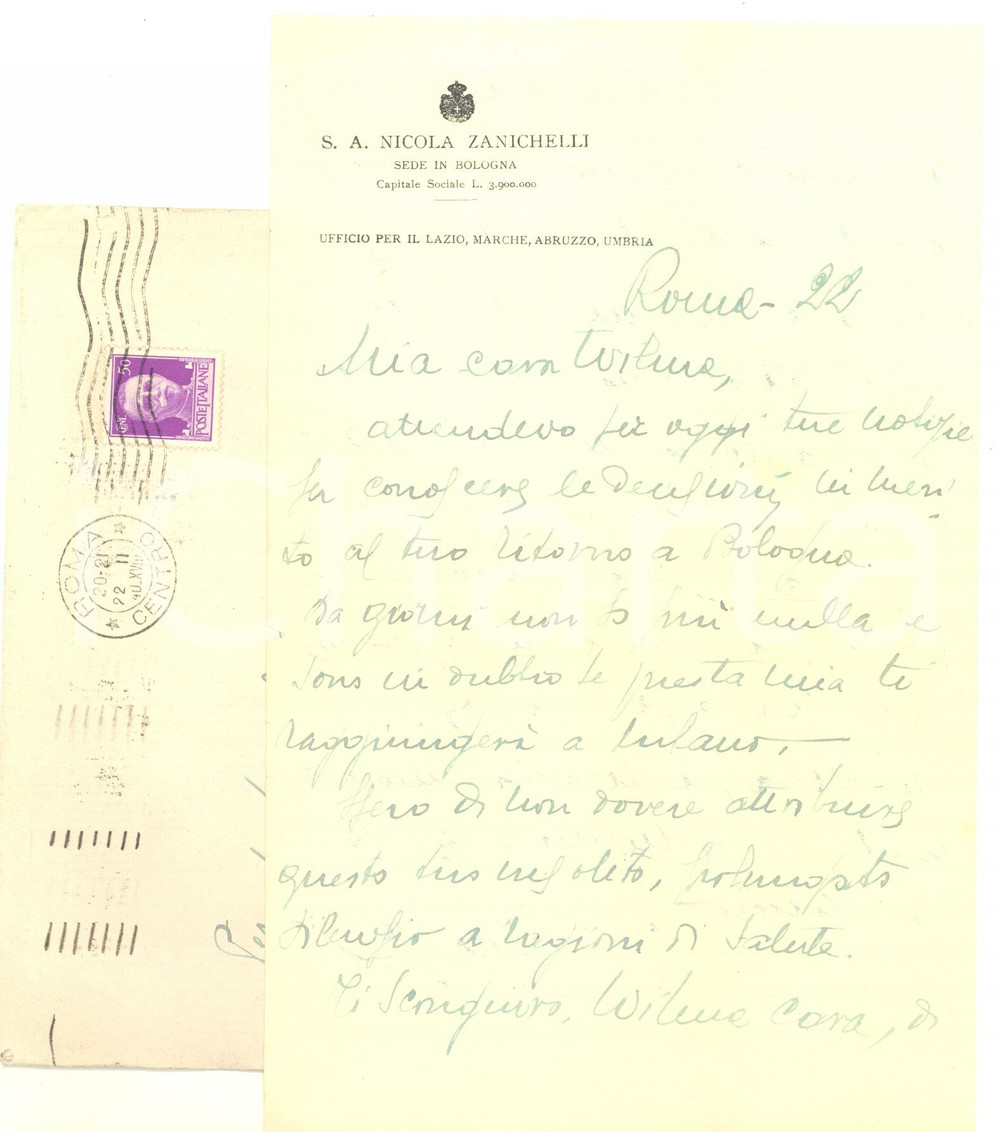 S. A. NICOLA ZANICHELLI
SEDE IN BOLOGNA
Capitale Sociale L. 3.900.000
UFFICIO PER IL LAZIO, MARCHE, ABRUZZO, UMBRIA
Roma - 22
Mia cara Wilma,
attendevo per oggi tue notizie
per conoscere le decisioni in meri
to al tuo ritorno a Bologna.
Da giorni non so più nulla e
sono in dubbio se questa mia ti
raggiungerà a Milano. —
Spero di non dovere attribuire
questo tuo insolito, prolungato
silenzio a ragioni di salute.
Ti scongiuro, Wilma cara, di
50
CENT.
POSTE ITALIANE
ROMA CENTRO
20-21
22 II
40.XVIII
Per
Charta